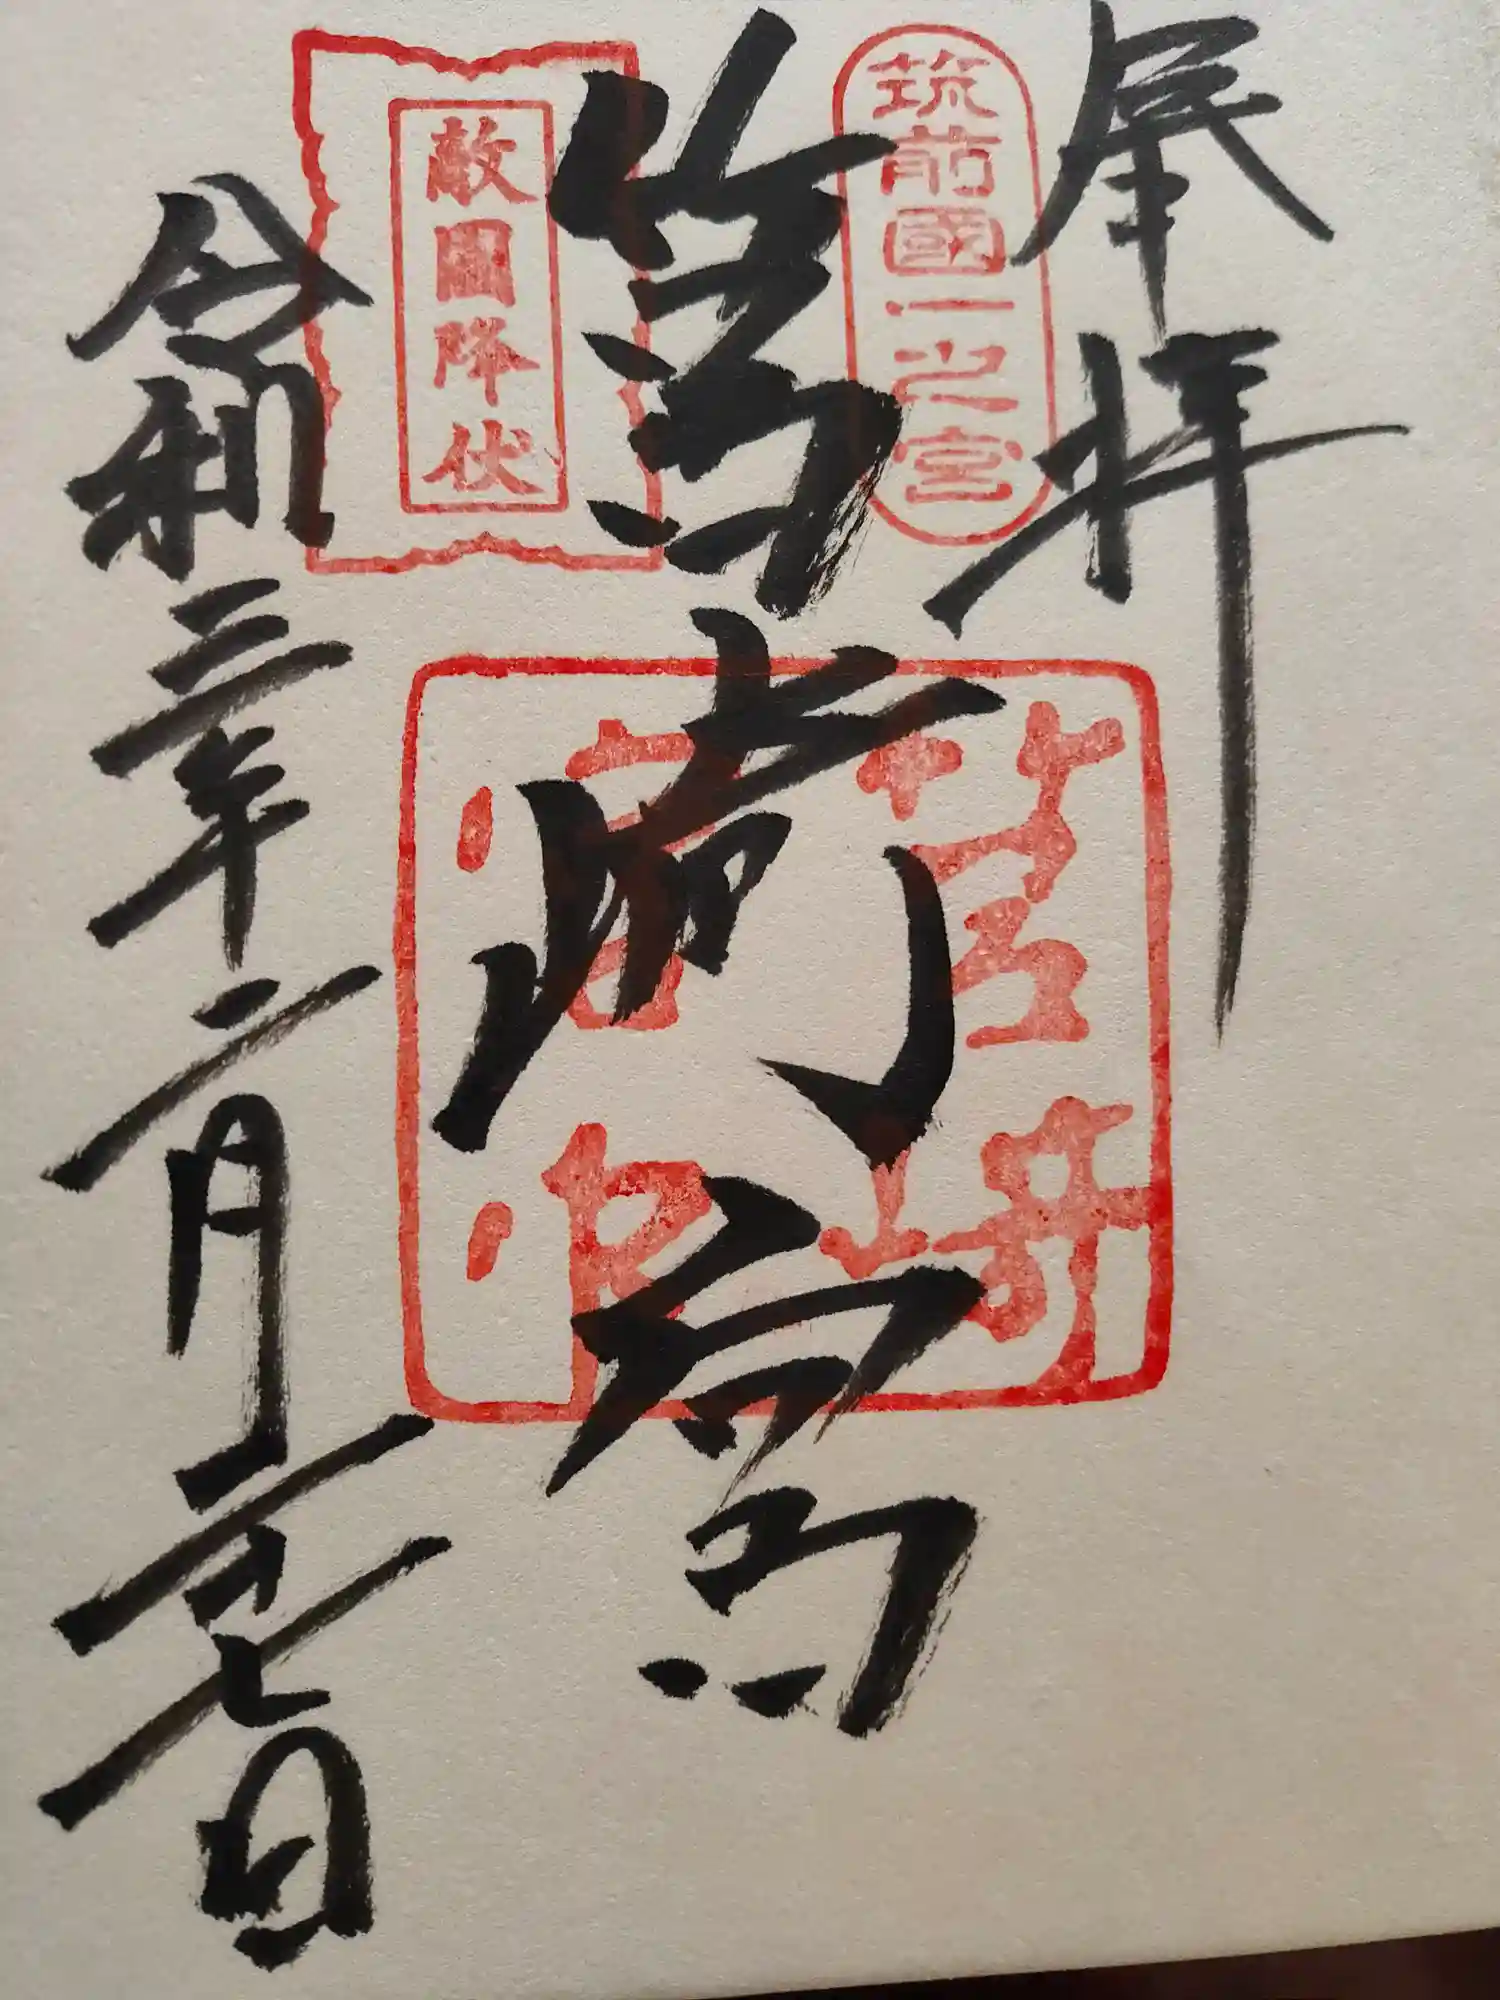 奉拝
筑前國一之宮
筥崎宮
筥崎
宮印
敵國降伏
令和三年二月二十七日